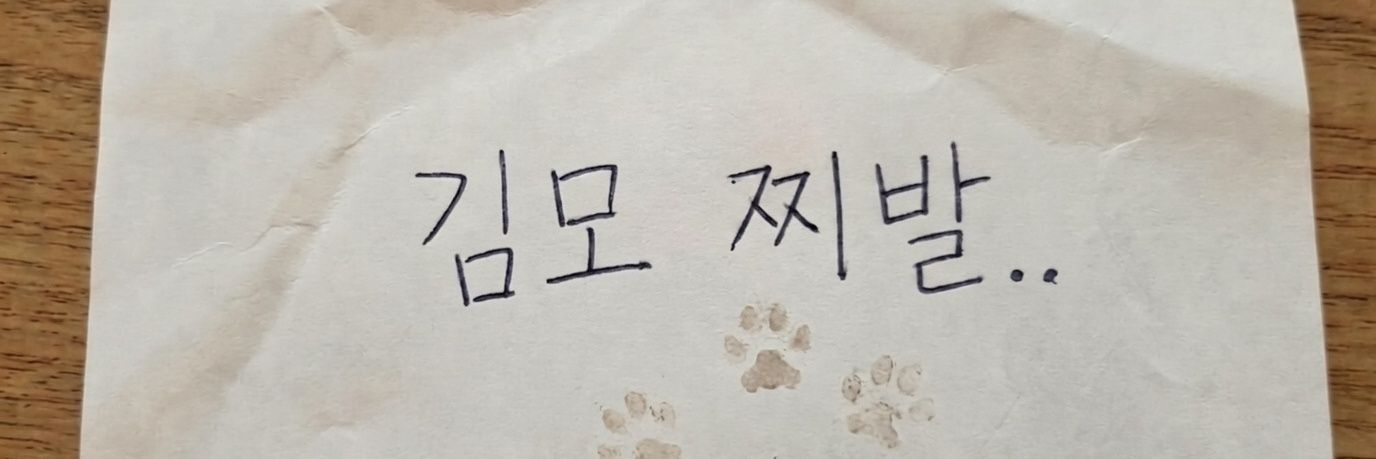 김모 찌발..